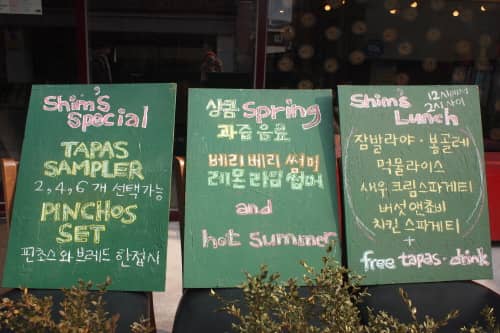 Shim's
Special
TAPAS
SAMPLER
2,4,6 개 선택가능
PINCHOS
SET
핀쵸스와 브레드 한접시
상콤 Spring
과즙음료
베리베리 썸머
레몬라임썸머
and
hot summer
Shim's
Lunch
12시에서
2시 사이
잠발라야·볼골레
먹물라이스
새우크림스파게티
버섯앤쵸비
치킨 스파게티
+
free tapas·drink